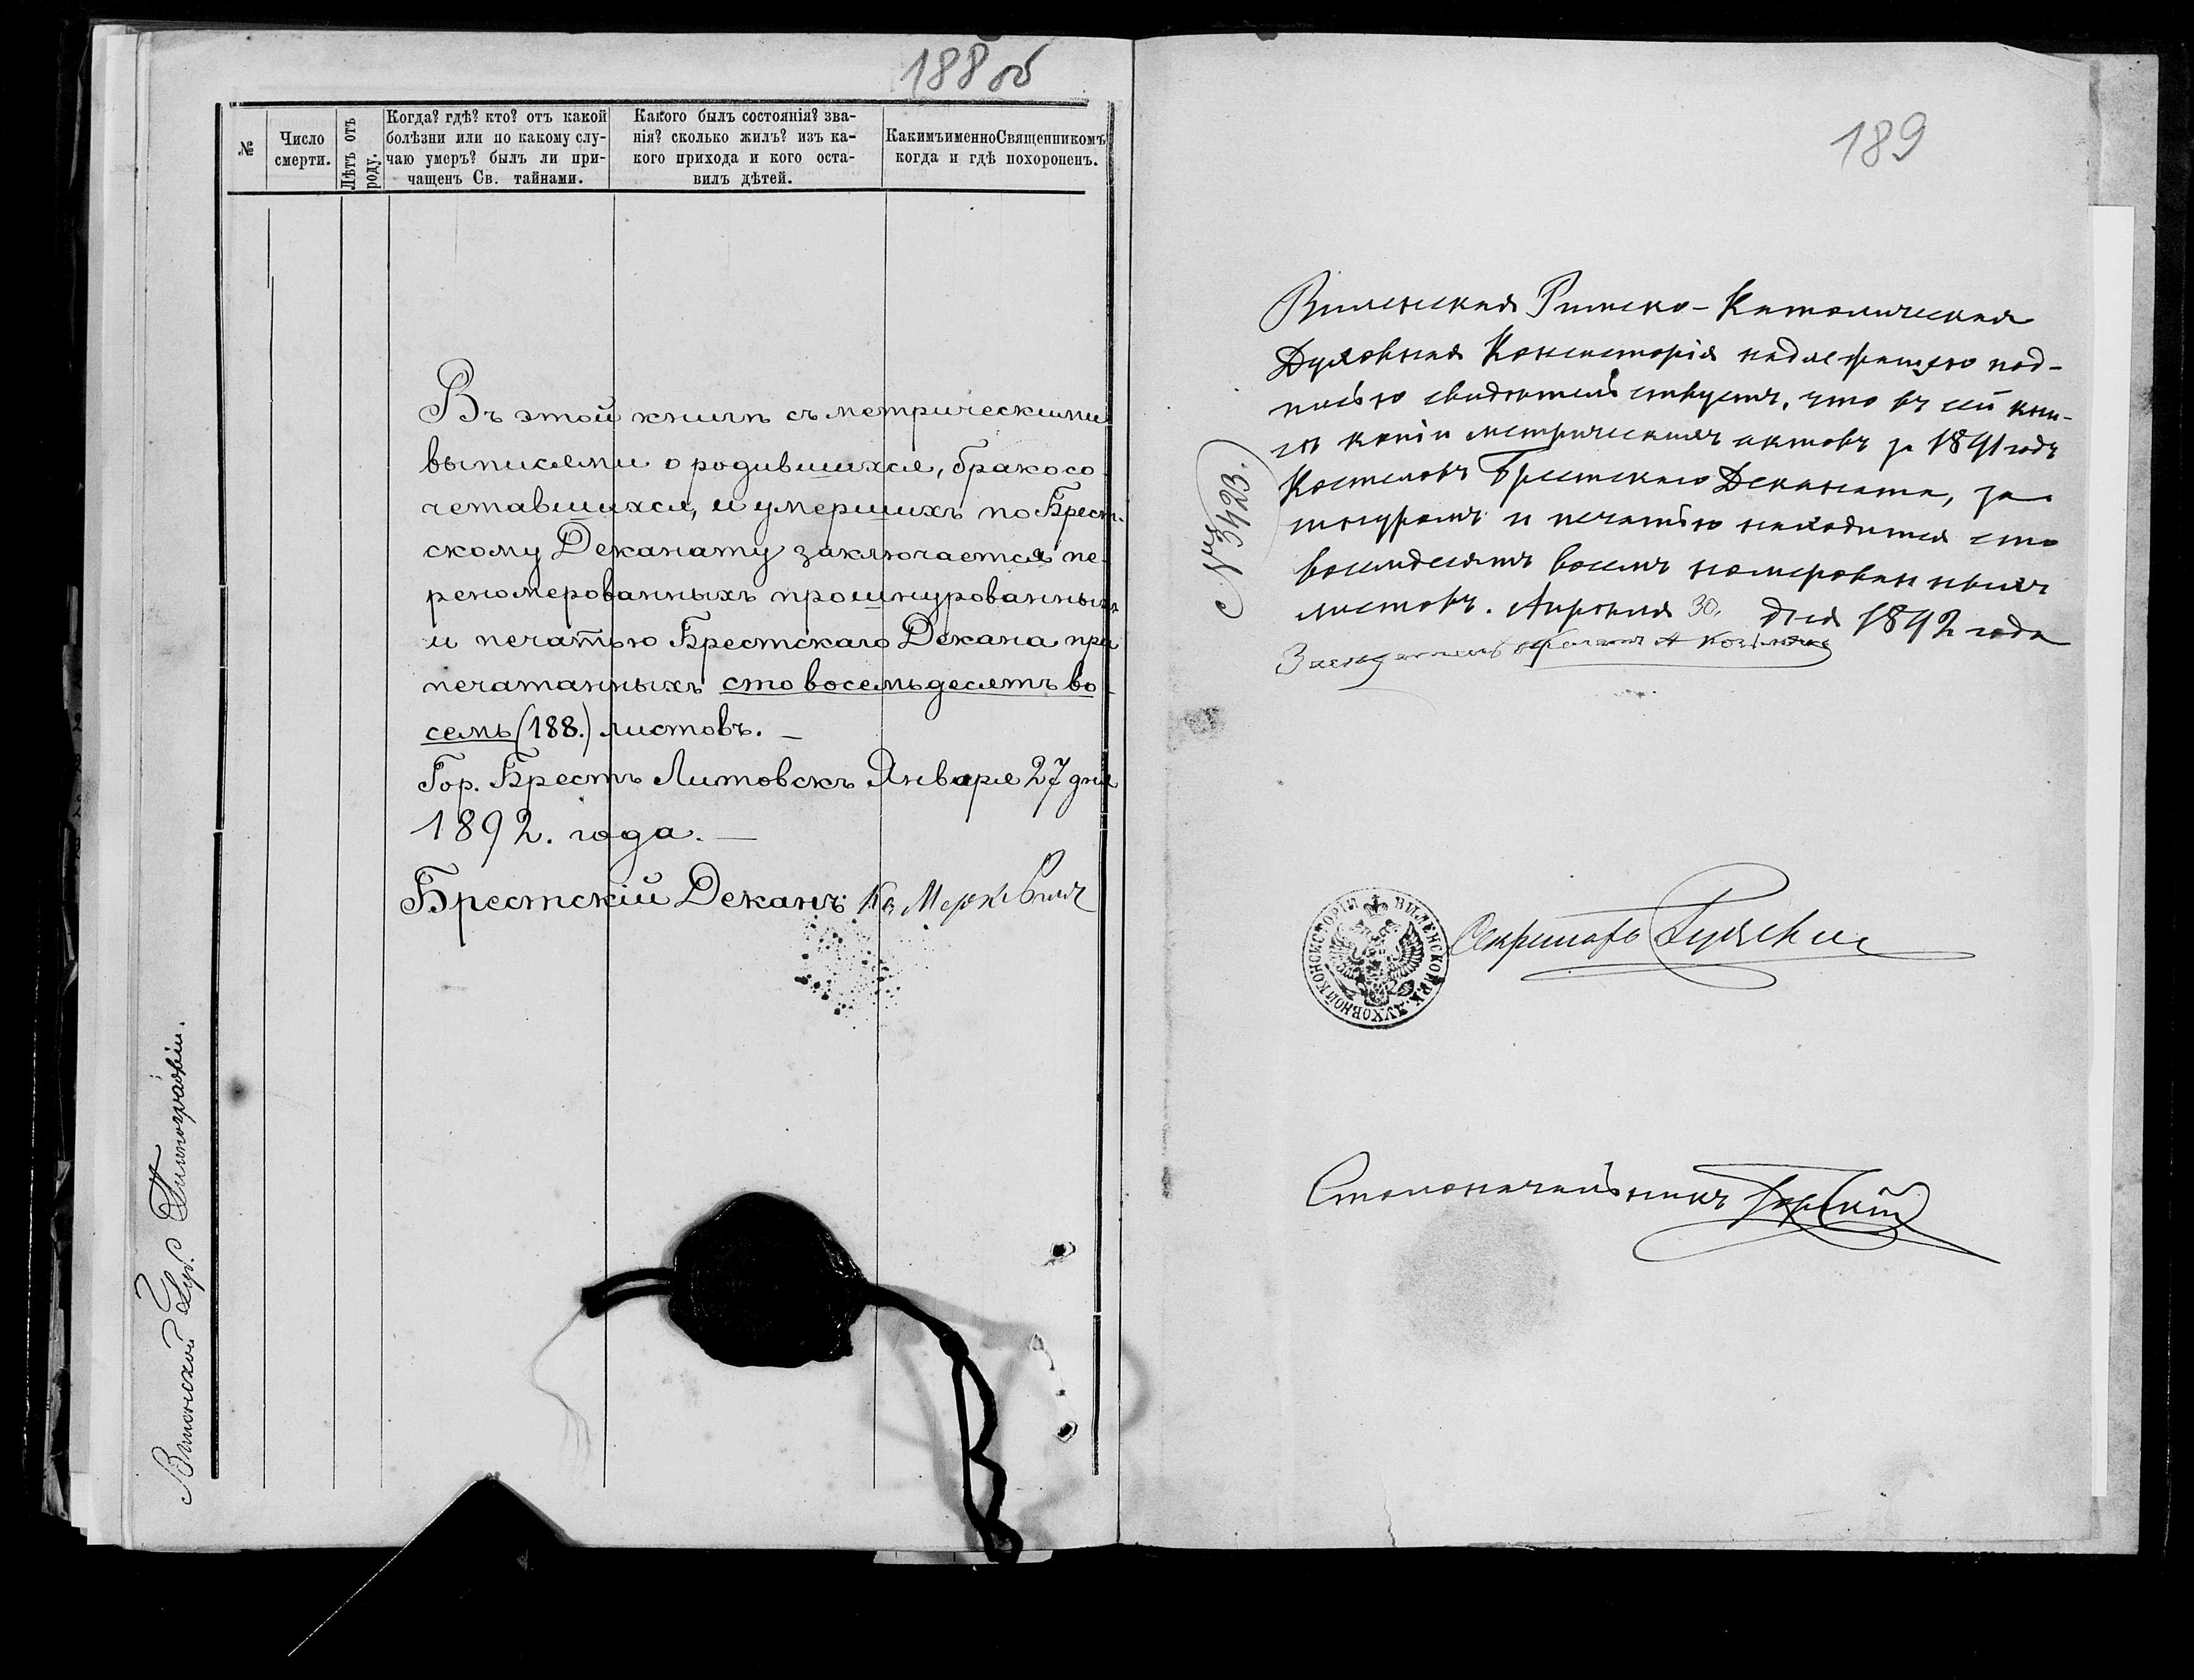 188 об
№
Число
смерти.
Лѣтъ отъ
роду.
Когда? гдѣ? кто? отъ какой
болѣзни или по какому слу-
чаю умеръ? былъ ли при-
чащенъ Св. тайнами.
Какого былъ состоянія? зва-
нія? сколько жилъ? изъ ка-
кого прихода и кого оста-
вилъ дѣтей.
Какимъ именно Священникомъ
когда и гдѣ похороненъ.
Въ этой книгѣ съ метрическими
выписями о родившихся, бракосо-
четавшихся, и умершихъ по Брест-
скому Деканату заключается пе-
реномерованныхъ прошнурованныхъ
и печатью Брестскаго Декана при
печатанныхъ сто восемьдесятъ во-
семь (188.) листовъ. –
Гор. Брестъ Литовскъ Января 27 дня
1892. года. –
Брестскій Деканъ: Кс.
Виленской Губ. Типографіи.
189
№ 3423.
Виленская Римско-Католическая
Духовная Консисторія надлежащею под-
писью свидѣтельствуетъ, что въ сей кни-
гѣ копіи метрическихъ актовъ за 1891 годъ
Костеловъ Брестскаго Деканата, за
шнуромъ и печатью находится сто
восемдесятъ восемь номерованныхъ
листовъ. Апрѣля 30. дня 1892 года
Засѣдатель
ВИЛЕНСКОЙ Р.К. ДУХОВНОЙ КОНСИСТОРІИ
Секретарь
Столоначальникъ